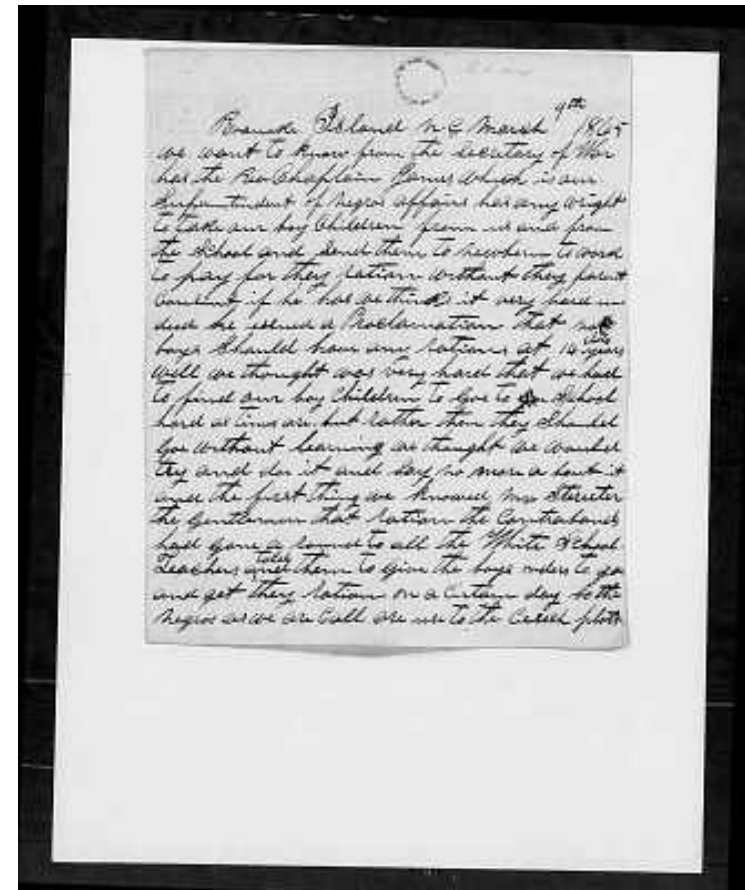 Roanoke Island N C March 9th 1865
we want to know from the Secutary of War
has the Rev Chaplain James which is our
Superintendent of negros affairs has any wright
to take our boy Children from us and from
the School and Send them to newbern to work
to pay for they ration without they parent
Consent if he has we thinks it very hard in
deed he essued a Proclamation that no
boys Should have any rations at 14 years old
well we thought was very hard that we had
to find our boy Children to Goe to School
hard as times are. but rather then they Should
Goe without learning we thought we would
try and doe it and Say no more a bout it
and the first thing we knowed Mr Streeter
the Gentlemen that ration the Contrabands
had Gone a round to all the White School-
Teachers and told them to Give the boys orders to goe
and get they ration on a Cirtain day so the
negros as we are Call are use to the Cesesh plots